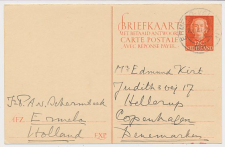 BRIEFKAART
MET BETAALD ANTWOORD
CARTE POSTALE
AVEC RÉPONSE PAYÉE
NEDERLAND
Mr Edmund Kirt
Judithsvej 17
Hellerup
Copenhagen
Denemarken
Ermelo
Holland
AFZ.
EXP.